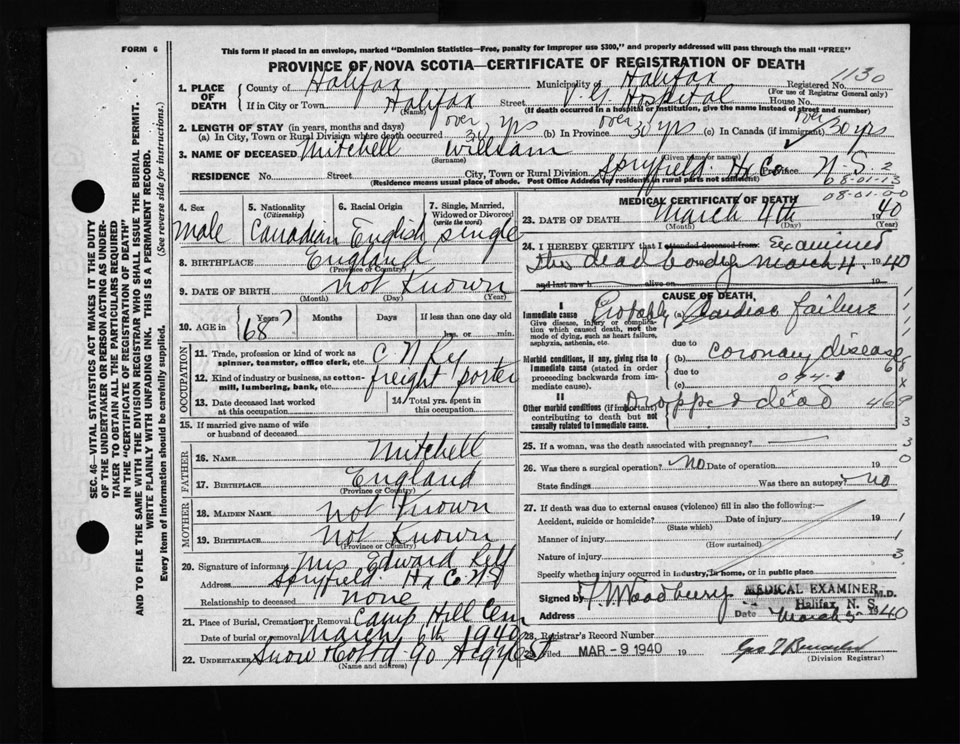 FORM 6
This form if placed in an envelope, marked "Dominion Statistics—Free, penalty for improper use $300," and properly addressed will pass through the mail "FREE"
PROVINCE OF NOVA SCOTIA—CERTIFICATE OF REGISTRATION OF DEATH
1130
1. PLACE OF DEATH
County of Halifax Municipality of Halifax Registered No.
(For use of Registrar General only)
If in City or Town Halifax Street V.G. Hospital House No.
(Name) (If death occurred in a hospital or institution, give the name instead of street and number)
2. LENGTH OF STAY (in years, months and days)
(a) In City, Town or Rural Division where death occurred over 30 yrs (b) In Province over 30 yrs (c) In Canada (if immigrant) over 30 yrs
3. NAME OF DECEASED Mitchell William
(Surname) (Given name or names)
RESIDENCE No. Street City, Town or Rural Division Spryfield Hx Co Province N-S
(Residence means usual place of abode. Post Office Address for residents in rural parts not sufficient)
2
68-01-13
08-01-00
4. Sex Male
5. Nationality (Citizenship) Canadian
6. Racial Origin English
7. Single, Married, Widowed or Divorced (write the word) Single
8. BIRTHPLACE England
(Province or Country)
9. DATE OF BIRTH not Known
(Month) (Day) (Year)
10. AGE in Years 68? Months Days If less than one day old
hrs. or min.
OCCUPATION
11. Trade, profession or kind of work as spinner, teamster, office clerk, etc. C N Ry
12. Kind of industry or business, as cotton-mill, lumbering, bank, etc. freight porter
13. Date deceased last worked at this occupation
14. Total yrs. spent in this occupation
15. If married give name of wife or husband of deceased
FATHER
16. NAME Mitchell
17. BIRTHPLACE England
(Province or Country)
MOTHER
18. MAIDEN NAME not Known
19. BIRTHPLACE not Known
(Province or Country)
20. Signature of informant Mrs Edward
Address Spryfield Hx Co NS
Relationship to deceased none
21. Place of Burial, Cremation or Removal Camp Hill Cem
Date of burial or removal March 6th 1940
22. UNDERTAKER Snow & Co Ltd 90 Argyle St
MEDICAL CERTIFICATE OF DEATH
23. DATE OF DEATH March 4th 1940
(Month) (Day) (Year)
24. I HEREBY CERTIFY that I attended deceased from: Examined
the dead body March 4 1940
and last saw h alive on 19
CAUSE OF DEATH
I
Immediate cause
Give disease, injury or complication which caused death, not the mode of dying, such as heart failure, asphyxia, asthenia, etc.
(a) Probably Cardiac failure
due to
Morbid conditions, if any, giving rise to immediate cause (stated in order proceeding backwards from immediate cause).
(b) coronary disease
due to
(c) 094-1
II
Other morbid conditions (if important) contributing to death but not causally related to immediate cause.
Dropped dead
469
25. If a woman, was the death associated with pregnancy?
26. Was there a surgical operation? No Date of operation 19
State findings Was there an autopsy? no
27. If death was due to external causes (violence) fill in also the following:—
Accident, suicide or homicide? Date of injury 19
(State which)
Manner of injury
(How sustained)
Nature of injury
Specify whether injury occurred in industry, in home, or in public place
Signed by Woodbury M.D.
MEDICAL EXAMINER
Halifax, N. S.
Address Date March 5 1940
28. Registrar's Record Number
Filed MAR - 9 1940 19
(Division Registrar)
SEC. 46—VITAL STATISTICS ACT MAKES IT THE DUTY
OF THE UNDERTAKER OR PERSON ACTING AS UNDER-
TAKER TO OBTAIN ALL THE PARTICULARS REQUIRED
IN THE "CERTIFICATE OF REGISTRATION OF DEATH"
AND TO FILE THE SAME WITH THE DIVISION REGISTRAR WHO SHALL ISSUE THE BURIAL PERMIT.
WRITE PLAINLY WITH UNFADING INK. THIS IS A PERMANENT RECORD.
Every item of information should be carefully supplied. (See reverse side for instructions.)